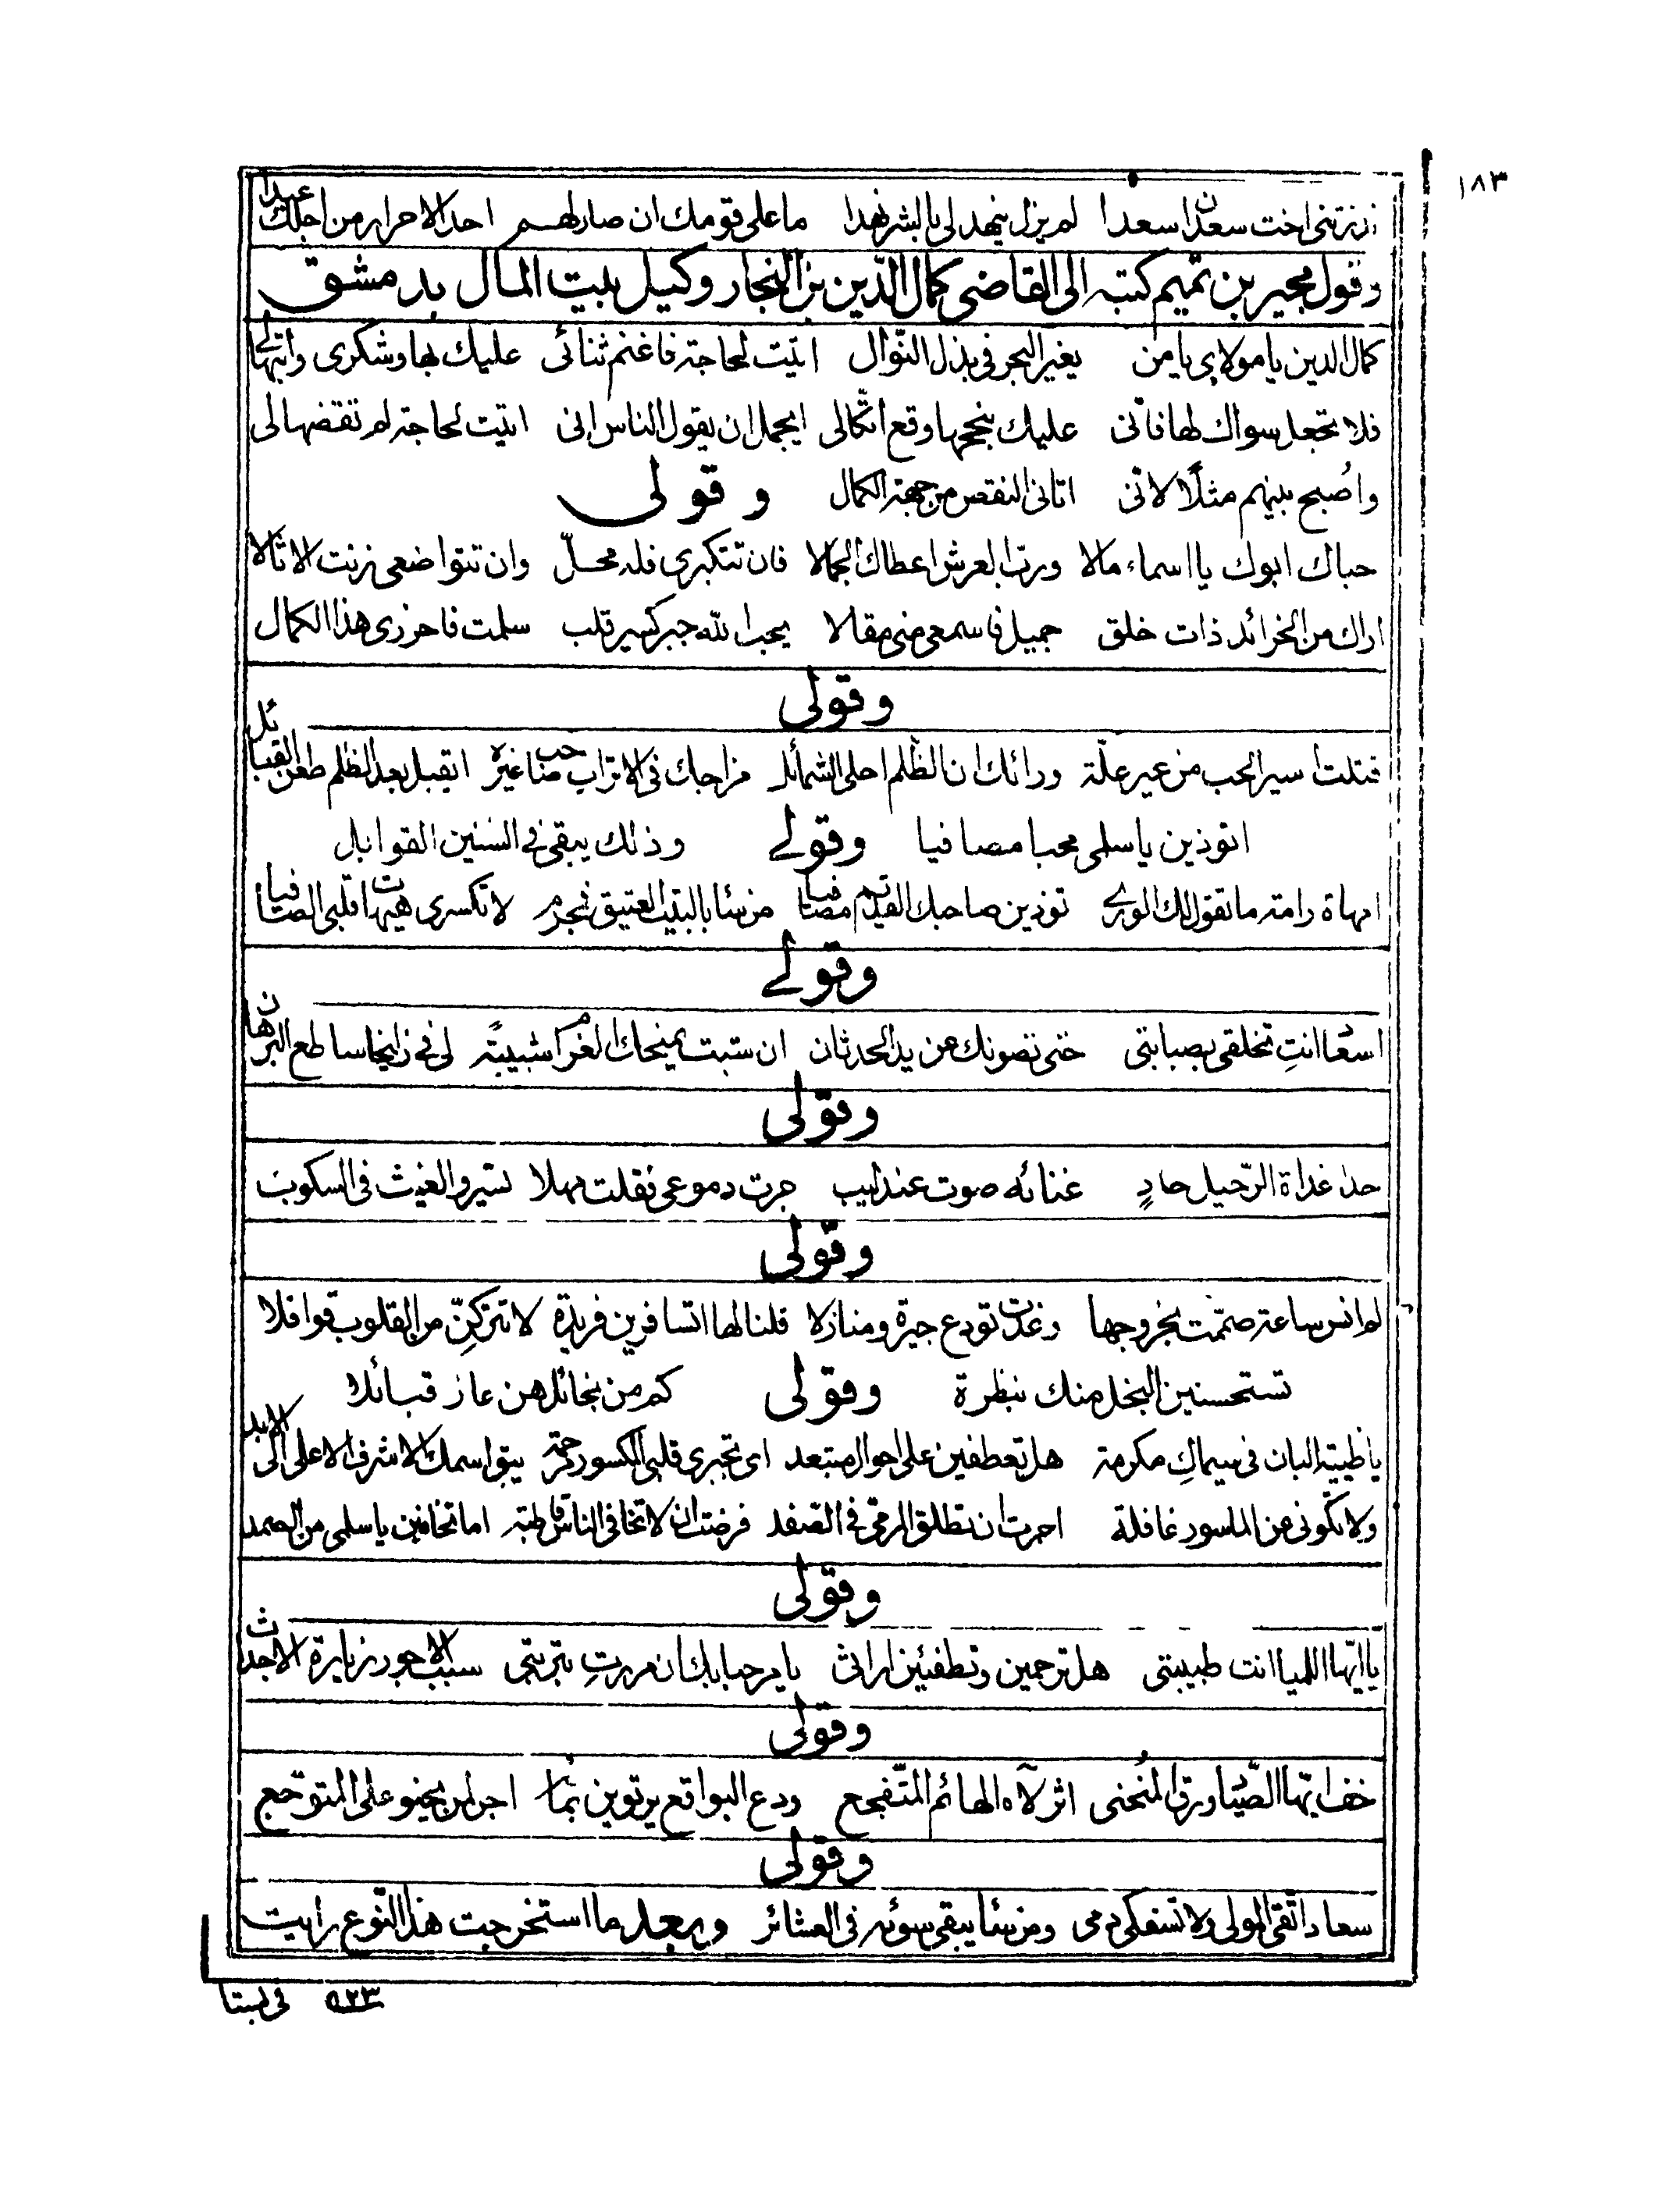 ١٨٣
زرتني اخت سعد ان سعدا لم يزل ينهد لي بالبشر نهدا ما على قومك ان صار لهم احد الاحرار من اجلك عبدا
وقول مجير بن تميم كتبه الى القاضي كمال الدين بن النجار وكيل بيت المال بدمشق
كمال الدين يا مولاي يا من يغير البحر في بذل النوال اتيت لحاجة فاغنم ثنائي عليك بها وشكري وابتهالي
فلا تجعل سواك لها فاني عليك بنجحها وقع اتكالي ايجمل ان يقول الناس اني اتيت لحاجة لم تقضها لي
واصبح بينهم مثلًا لاني اتاني النقص من جهة الكمال وقولي
حباك ابوك يا اسماء مالا ورب العرش اعطاك الجمالا فان تتكبري فله محلّ وان تتواضعي زنت الاثالا
اراك من الخرائد ذات خلق جميل فاسمعي مني مقالا يحب الله جبر كسير قلب سلمت فاحرزي هذا الكمال
وقولي
قتلت اسير الحب من غير علّة ورائك ان الظلم احلى الشمائل مزاحك في الاتراب حب مناغيرة ايقبل بعد الظلم طعن القبائل
اتوذين يا سلمى محبا مصافيا وقولے وذلك يبقى في السنين القوابل
امهاة رامة ما تقول لك الورے توذين صاحبك القديم مصافيا من شا بالبيت العتيق فجرم لا تكسري هيهات قلبي الصافيا
وقولے
اسعا انتِ تخلقي بصبابتي حتى نصونك عن يد الحدثان ان شبت يمنحك الغرام شبيبة لي في زليخا ساطع البرهان
وقولي
حدا غداة الرّحيل حادٍ غنائه صوت عندليب جرت دموعي فقلت مهلا تسير والغيث في السكوب
وقولي
لم انس ساعة صمّمت بخروجها وغدت تودع جيرة ومنازلا قلنا لها اتسافرين فريدة لا تتركنّ من القلوب قوافلا
تستحسنين البخل منك بنظرة وقولي كم من بخائل هن عاز قبائلا
يا ظبية البان في سيماكِ مكرمة هل تعطفين على احوال مبتعد اي تجبري قلبي المكسور رحمة يبق اسمك الاشرف الاعلى الى الابد
ولا تكوني عن الماسور غافلة احرت ان تطلق المرمي في الصفد فرضت ان لا تخافي الناس قاطبة اما تخافين يا سلمى من الصمد
وقولي
يا ايّها اللميا انت طبيبتي هل ترحمين وتطفئين اراث يا مرحبا بك ان مررتِ بتربتي سبب الاجور زيارة الاجداث
وقولي
خف ايّها الصّياد ورق المنحنى اثر لآه الهائم المتفجع ودع البواقع يرتوين بمآ اجر لمن يحنو على المتوجع
وقولي
سعاد اتّقي المولى ولا تسفكي دمي ومن شا يبقي سوئه في العشائر وبعد ما استخرجت هذا النّوع رايت
٥٢٣ في بستا